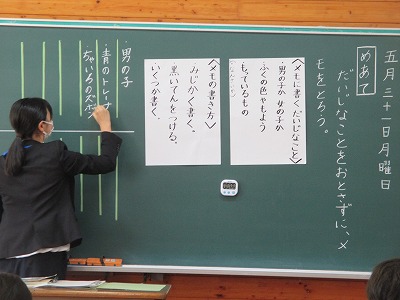 五月三十一日月曜日
めあて
だいじなことをおとさずに、メ
モをとろう。
〈メモに書くだいじなこと〉
・男の子か 女の子か
・ふくの色やもよう
・もっているもの
〈メモの書き方〉
・みじかく書く。
・黒い てんをつける。
・いくつか書く。
・男の子
・青のトレーナ
ちゃいろのズボ